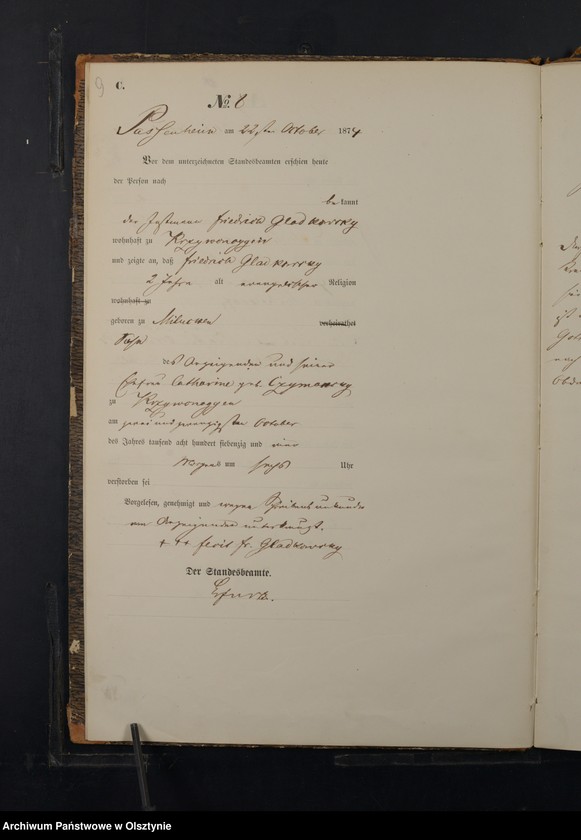 9
C.
No. 8
Passenheim am 22sten October 1874
Vor dem unterzeichneten Standesbeamten erschien heute
der Person nach
bekannt
der Instmann Friedrich Gladkowsky
wohnhaft zu Krzywonoggen
und zeigte an, daß Friedrich Gladkowsky
2 Jahre alt evangelischer Religion
wohnhaft zu
geboren zu verheirathet
Sohn
des Anzeigenden und seiner
Ehefrau Catharine geb Czymansky
zu Krzywonoggen
am zwei und zwanzigsten October
des Jahres tausend acht hundert siebenzig und vier
Morgens um sechs Uhr
verstorben sei
Vorgelesen, genehmigt und wegen Schreibensunkunde
vom Anzeigenden unterkreuzt.
+++ fecit Fr. Gladkowsky
Der Standesbeamte.